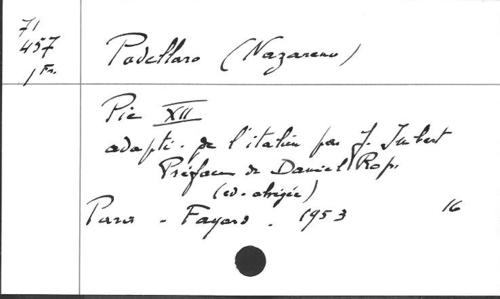 71
457
1 Fr.
Padellaro (Nazareno)
Pie XII
adapté de l'italien par J. Imbert
Préface de Daniel Rops
(éd. abrégée)
Paris - Fayard - 1953 16